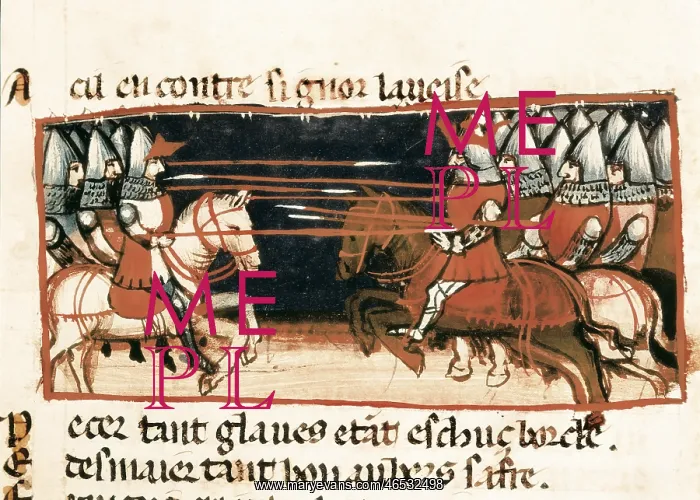 A cil encontre signor laueise
ME
PL
ME
PL
P ecer tant glaues
E desmaier tant bon aubers safre.
www.maryevans.com/46532498